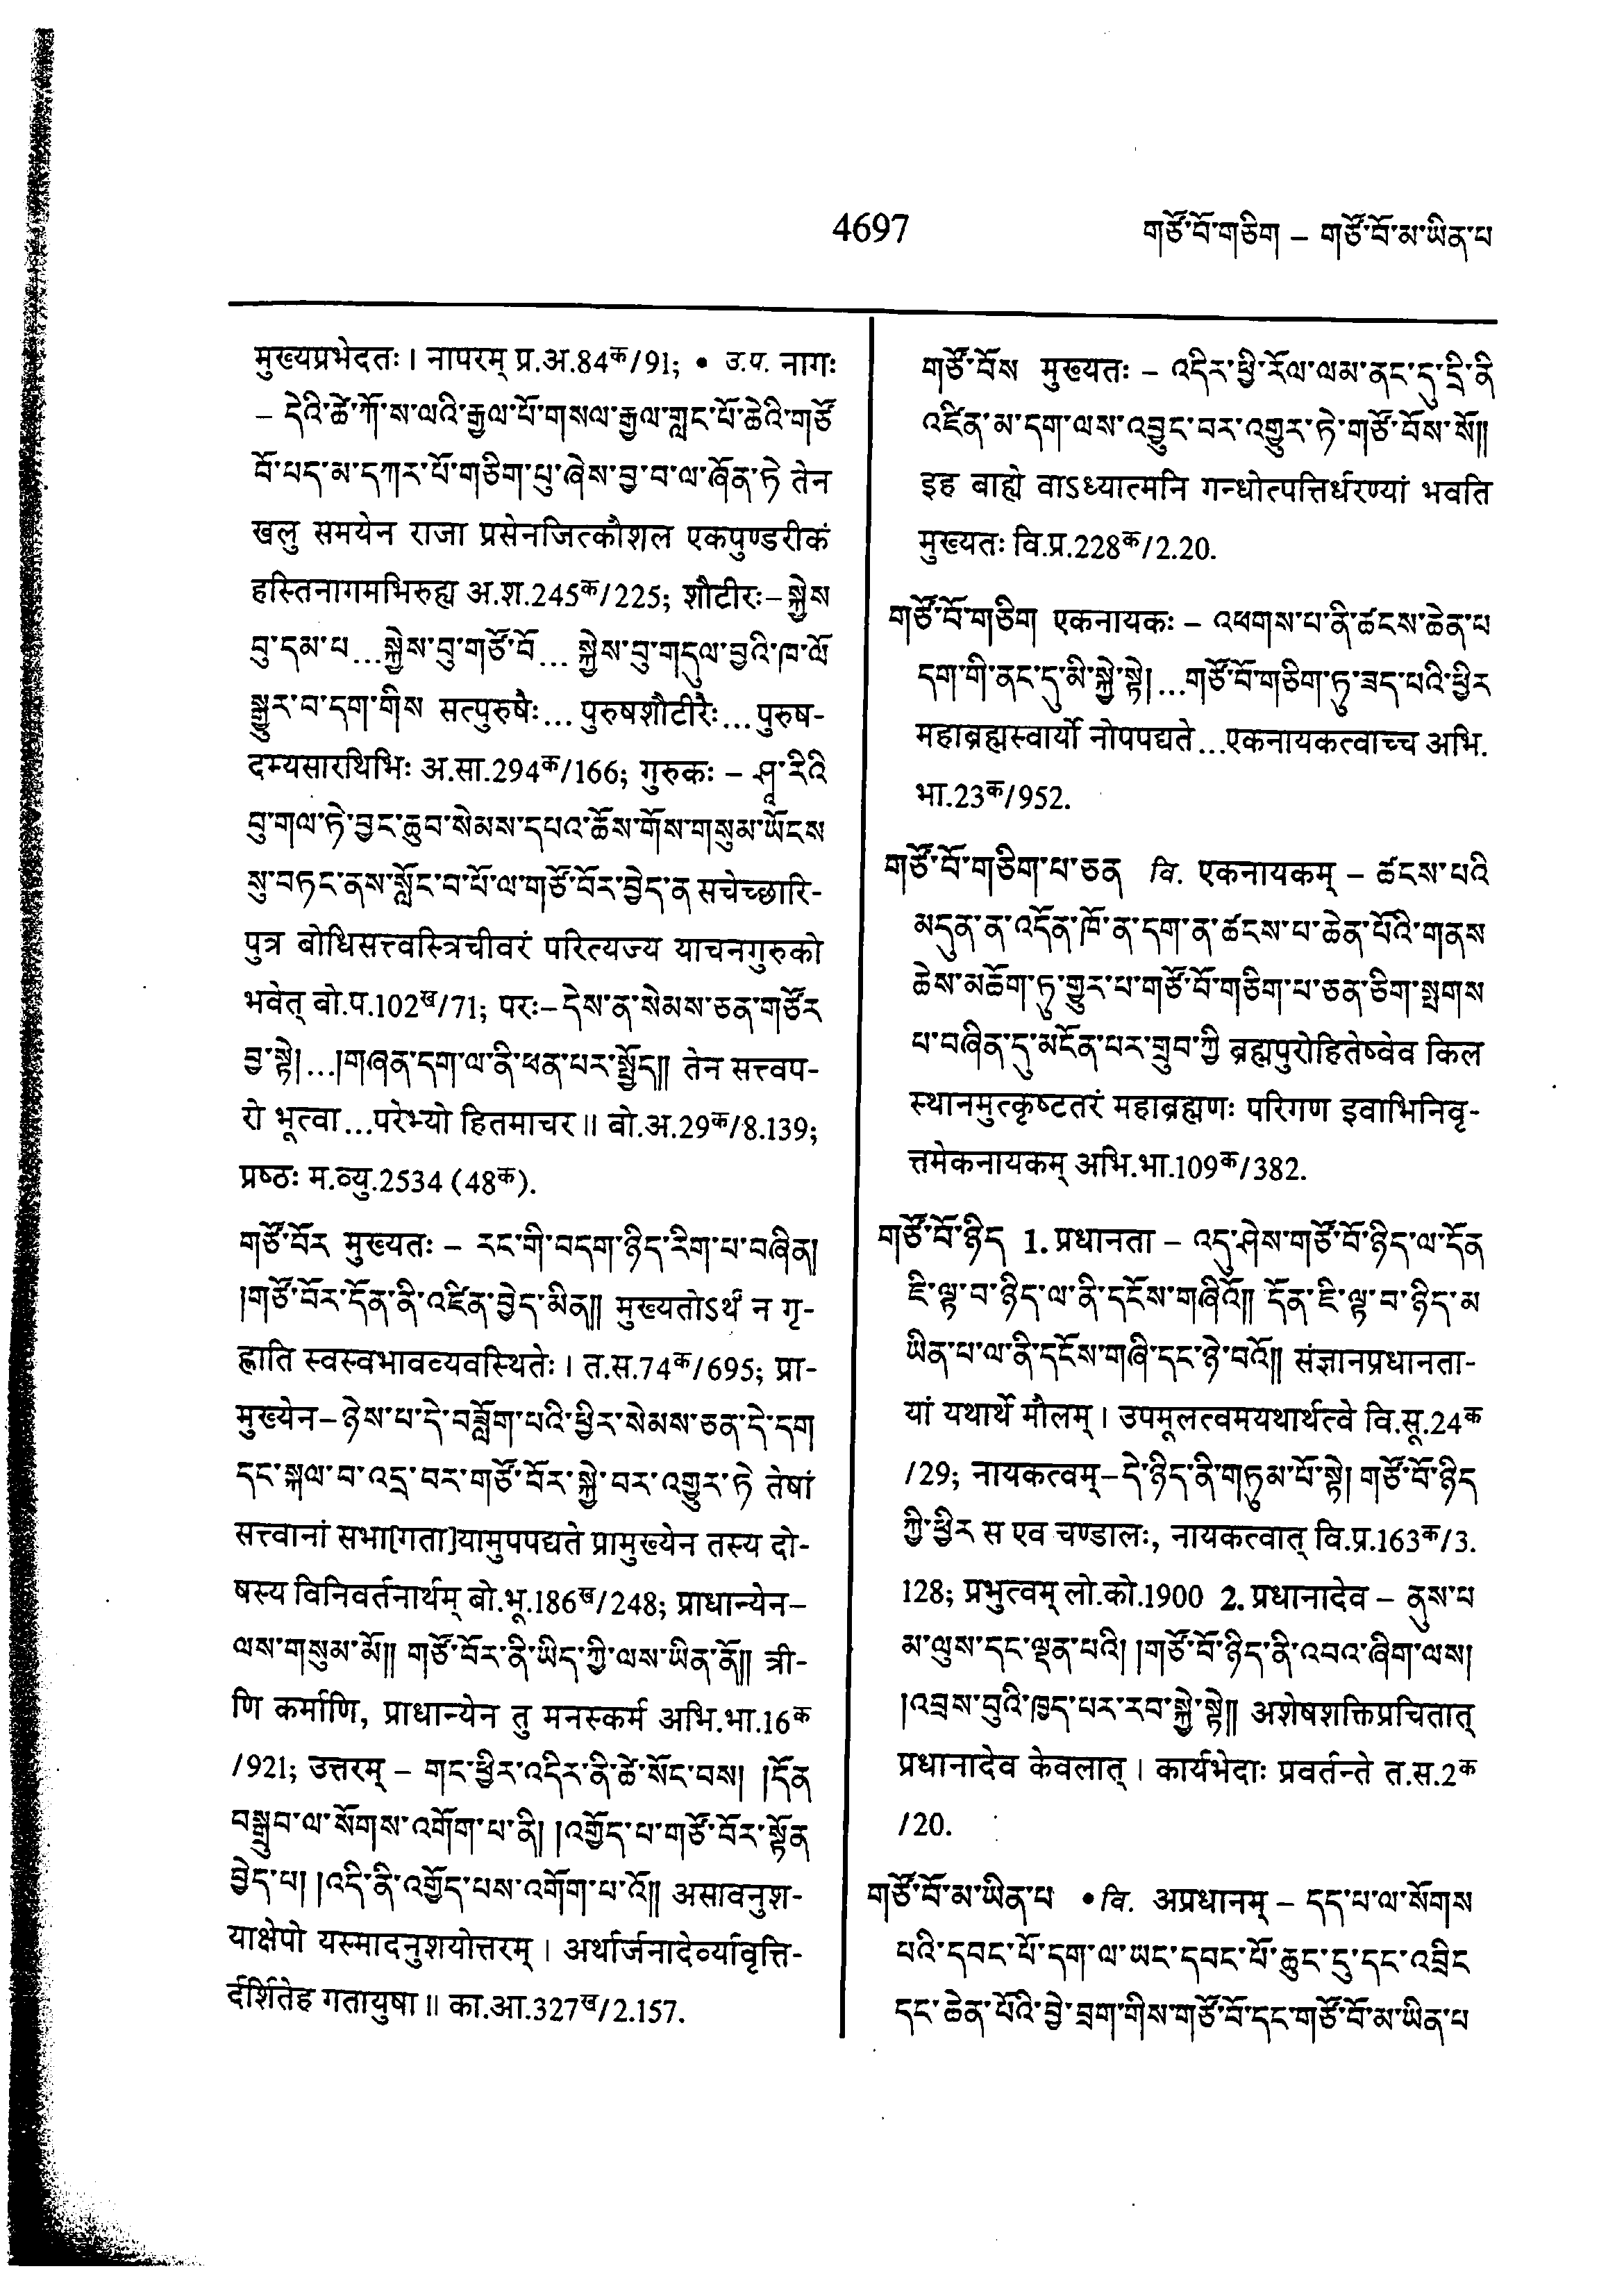 4697
གཙོ་བོ་གཅིག – གཙོ་བོ་མ་ཡིན་པ
मुख्यप्रभेदतः। नापरम् प्र.अ.84क/91; • उ.प. नागः
– དེའི་ཚེ་ཀོ་ས་ལའི་རྒྱལ་པོ་གསལ་རྒྱལ་གླང་པོ་ཆེའི་གཙོ
བོ་པད་མ་དཀར་པོ་གཅིག་པུ་ཞེས་བྱ་བ་ལ་ཞོན་ཏེ तेन
खलु समयेन राजा प्रसेनजित्कौशल एकपुण्डरीकं
हस्तिनागमभिरुह्य अ.श.245क/225; शौटीरः– སྐྱེས
བུ་དམ་པ...སྐྱེས་བུ་གཙོ་བོ... སྐྱེས་བུ་གདུལ་བྱའི་ཁ་ལོ
སྒྱུར་བ་དག་གིས सत्पुरुषैः... पुरुषशौटीरैः... पुरुष-
दम्यसारथिभिः अ.सा.294क/166; गुरुकः – ཤཱ་རིའི
བུ་གལ་ཏེ་བྱང་ཆུབ་སེམས་དཔའ་ཆོས་གོས་གསུམ་ཡོངས
སུ་བཏང་ནས་སློང་བ་པོ་ལ་གཙོ་བོར་བྱེད་ན सचेच्छारि-
पुत्र बोधिसत्त्वस्त्रिचीवरं परित्यज्य याचनगुरुको
भवेत् बो.प.102ख/71; परः– དེས་ན་སེམས་ཅན་གཙོར
བྱ་སྟེ། ...།གཞན་དག་ལ་ནི་ཕན་པར་སྤྱོད།། तेन सत्त्वप-
रो भूत्वा...परेभ्यो हितमाचर॥ बो.अ.29क/8.139;
प्रष्ठः म.व्यु.2534 (48क).
གཙོ་བོར मुख्यतः – རང་གི་བདག་ཉིད་རིག་པ་བཞིན།
།གཙོ་བོར་དོན་ནི་འཛིན་བྱེད་མིན།། मुख्यतोऽर्थं न गृ-
ह्णाति स्वस्वभावव्यवस्थितेः। त.स.74क/695; प्रा-
मुख्येन– ཉེས་པ་དེ་བཟློག་པའི་ཕྱིར་སེམས་ཅན་དེ་དག
དང་སྐལ་བ་འདྲ་བར་གཙོ་བོར་སྐྱེ་བར་འགྱུར་ཏེ तेषां
सत्त्वानां सभा[गता]यामुपपद्यते प्रामुख्येन तस्य दो-
षस्य विनिवर्तनार्थम् बो.भू.186ख/248; प्राधान्येन–
ལས་གསུམ་མོ།། གཙོ་བོར་ནི་ཡིད་ཀྱི་ལས་ཡིན་ནོ།། त्री-
णि कर्माणि, प्राधान्येन तु मनस्कर्म अभि.भा.16क
/921; उत्तरम् – གང་ཕྱིར་འདིར་ནི་ཚེ་སོང་བས། །དོན
བསྒྲུབ་ལ་སོགས་འགོག་པ་ནི། །འགྱོད་པ་གཙོ་བོར་སྟོན
བྱེད་པ། །འདི་ནི་འགྱོད་པས་འགོག་པ་འོ།། असावनुश-
याक्षेपो यस्मादनुशयोत्तरम्। अर्थार्जनादेर्व्यावृत्ति-
र्दर्शितेह गतायुषा॥ का.आ.327ख/2.157.
གཙོ་བོས मुख्यतः – འདིར་ཕྱི་རོལ་ལམ་ནང་དུ་དྲི་ནི
འཛིན་མ་དག་ལས་འབྱུང་བར་འགྱུར་ཏེ་གཙོ་བོས་སོ།།
इह बाह्ये वाऽध्यात्मनि गन्धोत्पत्तिर्धरण्यां भवति
मुख्यतः वि.प्र.228क/2.20.
གཙོ་བོ་གཅིག एकनायकः – འཕགས་པ་ནི་ཚངས་ཆེན་པ
དག་གི་ནང་དུ་མི་སྐྱེ་སྟེ། ...གཙོ་བོ་གཅིག་ཏུ་ཟད་པའི་ཕྱིར
महाब्रह्मस्वार्यो नोपपद्यते...एकनायकत्वाच्च अभि.
भा.23क/952.
གཙོ་བོ་གཅིག་པ་ཅན वि. एकनायकम् – ཚངས་པའི
མདུན་ན་འདོན་ཁོ་ན་དག་ན་ཚངས་པ་ཆེན་པོའི་གནས
ཆེས་མཆོག་ཏུ་གྱུར་པ་གཙོ་བོ་གཅིག་པ་ཅན་ཅིག་སྤགས
པ་བཞིན་དུ་མངོན་པར་གྲུབ་ཀྱི ब्रह्मपुरोहितेष्वेव किल
स्थानमुत्कृष्टतरं महाब्रह्मणः परिगण इवाभिनिवृ-
त्तमेकनायकम् अभि.भा.109क/382.
གཙོ་བོ་ཉིད 1. प्रधानता – འདུ་ཤེས་གཙོ་བོ་ཉིད་ལ་དོན
ཇི་ལྟ་བ་ཉིད་ལ་ནི་དངོས་གཞིའོ།། དོན་ཇི་ལྟ་བ་ཉིད་མ
ཡིན་པ་ལ་ནི་དངོས་གཞི་དང་ཉེ་བའོ།། संज्ञानप्रधानता-
यां यथार्थे मौलम्। उपमूलत्वमयथार्थत्वे वि.सू.24क
/29; नायकत्वम्– དེ་ཉིད་ནི་གཏུམ་པོ་སྟེ། གཙོ་བོ་ཉིད
ཀྱི་ཕྱིར स एव चण्डालः, नायकत्वात् वि.प्र.163क/3.
128; प्रभुत्वम् लो.को.1900 2. प्रधानादेव – ནུས་པ
མ་ལུས་དང་ལྡན་པའི། །གཙོ་བོ་ཉིད་ནི་འབའ་ཞིག་ལས།
།འབྲས་བུའི་ཁྱད་པར་རབ་སྐྱེ་སྟེ།། अशेषशक्तिप्रचितात्
प्रधानादेव केवलात्। कार्यभेदाः प्रवर्तन्ते त.स.2क
/20.
གཙོ་བོ་མ་ཡིན་པ • वि. अप्रधानम् – དད་པ་ལ་སོགས
པའི་དབང་པོ་དག་ལ་ཡང་དབང་པོ་ཆུང་དུ་དང་འབྲིང
དང་ཆེན་པོའི་བྱེ་བྲག་གིས་གཙོ་བོ་དང་གཙོ་བོ་མ་ཡིན་པ